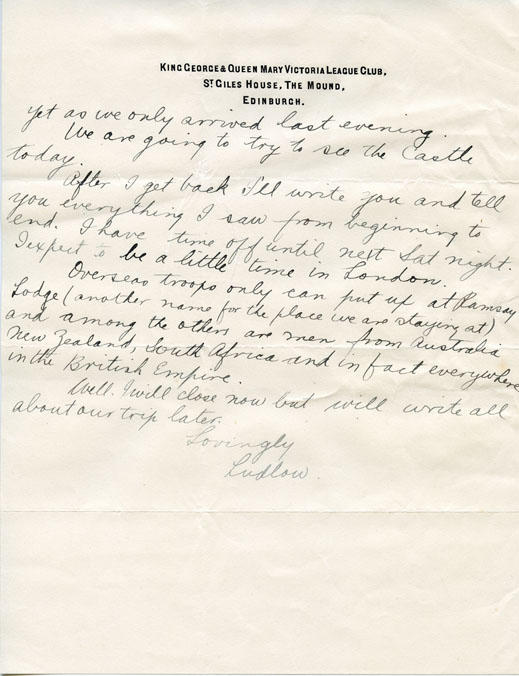 KING GEORGE & QUEEN MARY VICTORIA LEAGUE CLUB,
ST GILES HOUSE, THE MOUND,
EDINBURGH.
yet as we only arrived last evening.
We are going to try to see the Castle
today.
After I get back I'll write you and tell
you everything I saw from beginning to
end. I have time off until next Sat night.
I expect to be a little time in London.
Overseas troops only can put up at Ramsay
Lodge (another name for the place we are staying at)
and among the others are men from Australia
New Zealand, South Africa and in fact everywhere
in the British Empire.
Well I will close now but will write all
about our trip later.
Lovingly
Ludlow.